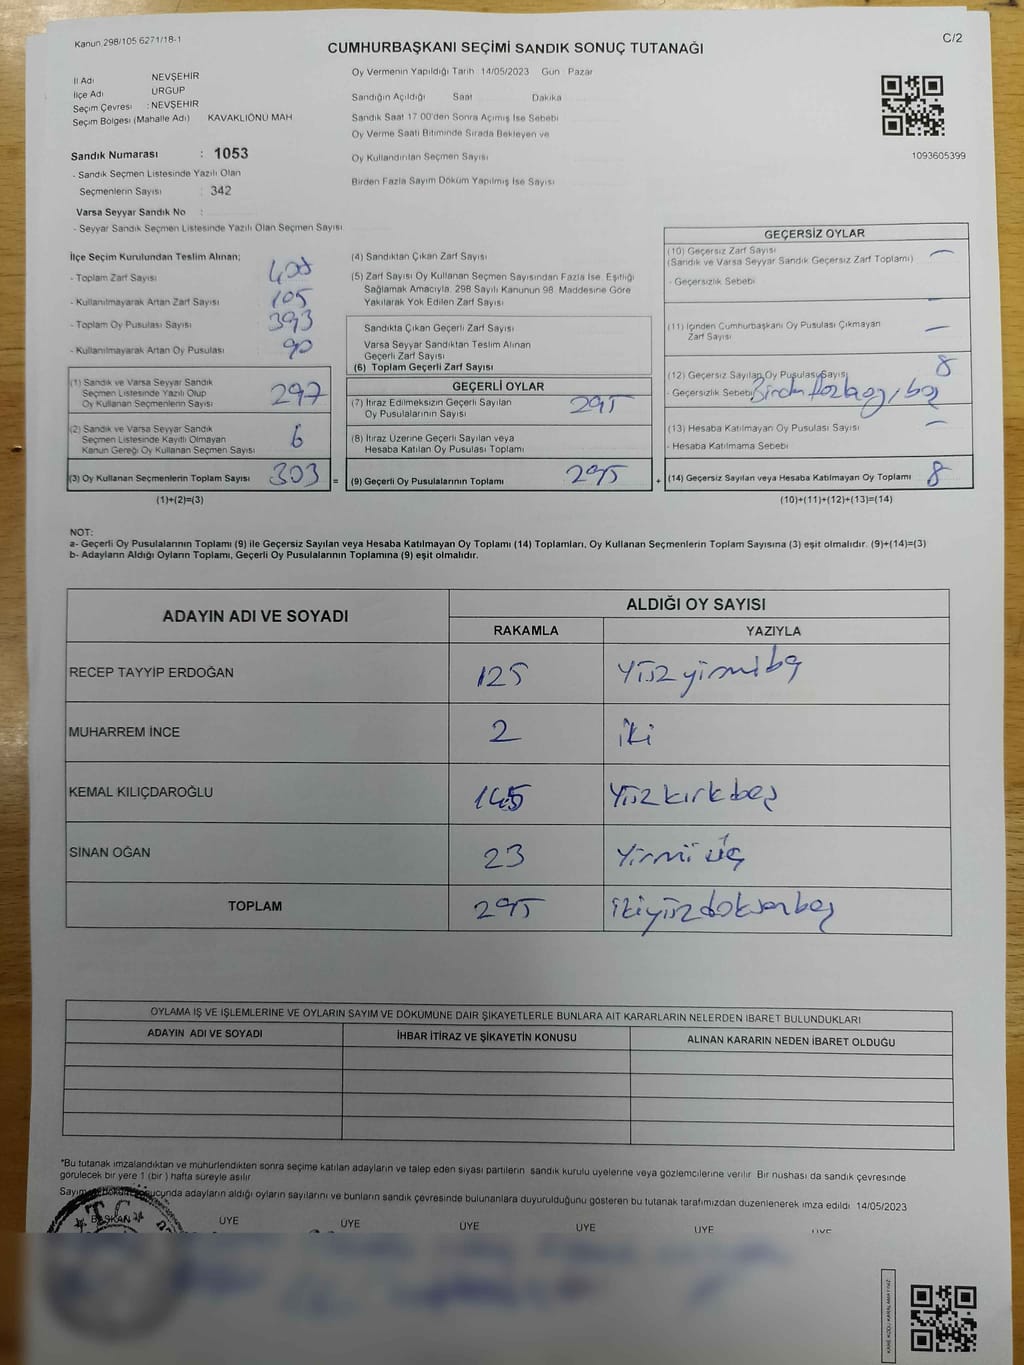 Kanun 298/105 6271/18-1
C/2
CUMHURBAŞKANI SEÇİMİ SANDIK SONUÇ TUTANAĞI
İl Adı NEVŞEHİR
İlçe Adı ÜRGÜP
Seçim Çevresi : NEVŞEHİR
Seçim Bölgesi (Mahalle Adı) KAVAKLIÖNÜ MAH
Oy Vermenin Yapıldığı Tarih 14/05/2023 Gün Pazar
Sandığın Açıldığı Saat Dakika
Sandık Saat 17 00'den Sonra Açımış İse Sebebi
Oy Verme Saati Bitiminde Sırada Bekleyen ve
Oy Kullandırılan Seçmen Sayısı
Birden Fazla Sayım Döküm Yapılmış İse Sayısı
1093605399
Sandık Numarası : 1053
- Sandık Seçmen Listesinde Yazılı Olan
Seçmenlerin Sayısı : 342
Varsa Seyyar Sandık No :
- Seyyar Sandık Seçmen Listesinde Yazılı Olan Seçmen Sayısı
İlçe Seçim Kurulundan Teslim Alınan;
- Toplam Zarf Sayısı :
- Kullanılmayarak Artan Zarf Sayısı : 105
- Toplam Oy Pusulası Sayısı : 393
- Kullanılmayarak Artan Oy Pusulası : 90
(1) Sandık ve Varsa Seyyar Sandık
Seçmen Listesinde Yazılı Olup
Oy Kullanan Seçmenlerin Sayısı 297
(2) Sandık ve Varsa Seyyar Sandık
Seçmen Listesinde Kayıtlı Olmayan
Kanun Gereği Oy Kullanan Seçmen Sayısı 6
(3) Oy Kullanan Seçmenlerin Toplam Sayısı 303 =
(1)+(2)=(3)
(4) Sandıktan Çıkan Zarf Sayısı
(5) Zarf Sayısı Oy Kullanan Seçmen Sayısından Fazla İse. Eşitliği
Sağlamak Amacıyla. 298 Sayılı Kanunun 98. Maddesine Göre
Yakılarak Yok Edilen Zarf Sayısı
Sandıkta Çıkan Geçerli Zarf Sayısı
Varsa Seyyar Sandıktan Teslim Alınan
Geçerli Zarf Sayısı
(6) Toplam Geçerli Zarf Sayısı
GEÇERLİ OYLAR
(7) İtiraz Edilmeksizin Geçerli Sayılan
Oy Pusulalarının Sayısı 295
(8) İtiraz Üzerine Geçerli Sayılan veya
Hesaba Katılan Oy Pusulası Toplamı
(9) Geçerli Oy Pusulalarının Toplamı 295 +
GEÇERSİZ OYLAR
(10) Geçersiz Zarf Sayısı —
(Sandık ve Varsa Seyyar Sandık Geçersiz Zarf Toplamı)
- Geçersizlik Sebebi —
(11) İçinden Cumhurbaşkanı Oy Pusulası Çıkmayan
Zarf Sayısı —
(12) Geçersiz Sayılan Oy Pusulası Sayısı 8
- Geçersizlik Sebebi Birden fazla oy, boş
(13) Hesaba Katılmayan Oy Pusulası Sayısı —
- Hesaba Katılmama Sebebi
(14) Geçersiz Sayılan veya Hesaba Katılmayan Oy Toplamı 8
(10)+(11)+(12)+(13)=(14)
NOT:
a- Geçerli Oy Pusulalarının Toplamı (9) ile Geçersiz Sayılan veya Hesaba Katılmayan Oy Toplamı (14) Toplamları, Oy Kullanan Seçmenlerin Toplam Sayısına (3) eşit olmalıdır. (9)+(14)=(3)
b- Adayların Aldığı Oyların Toplamı, Geçerli Oy Pusulalarının Toplamına (9) eşit olmalıdır.
ADAYIN ADI VE SOYADI ALDIĞI OY SAYISI
RAKAMLA YAZIYLA
RECEP TAYYİP ERDOĞAN 125 Yüz yirmi beş
MUHARREM İNCE 2 iki
KEMAL KILIÇDAROĞLU 145 Yüz kırk beş
SİNAN OĞAN 23 Yirmi üç
TOPLAM 295 ikiyüz doksan beş
OYLAMA İŞ VE İŞLEMLERİNE VE OYLARIN SAYIM VE DÖKÜMÜNE DAİR ŞİKAYETLERLE BUNLARA AİT KARARLARIN NELERDEN İBARET BULUNDUKLARI
ADAYIN ADI VE SOYADI İHBAR İTİRAZ VE ŞİKAYETİN KONUSU ALINAN KARARIN NEDEN İBARET OLDUĞU
*Bu tutanak imzalandıktan ve mühürlendikten sonra seçime katılan adayların ve talep eden siyasi partilerin sandık kurulu üyelerine veya gözlemcilerine verilir Bir nüshası da sandık çevresinde
görülecek bir yere 1 (bir) hafta süreyle asılır
Sayım ve döküm sonucunda adayların aldığı oyların sayılarını ve bunların sandık çevresinde bulunanlara duyurulduğunu gösteren bu tutanak tarafımızdan düzenlenerek imza edildi 14/05/2023
T.C.
BAŞKAN ÜYE ÜYE ÜYE ÜYE ÜYE ÜYE
KARE KODU KARALAMAYINIZ